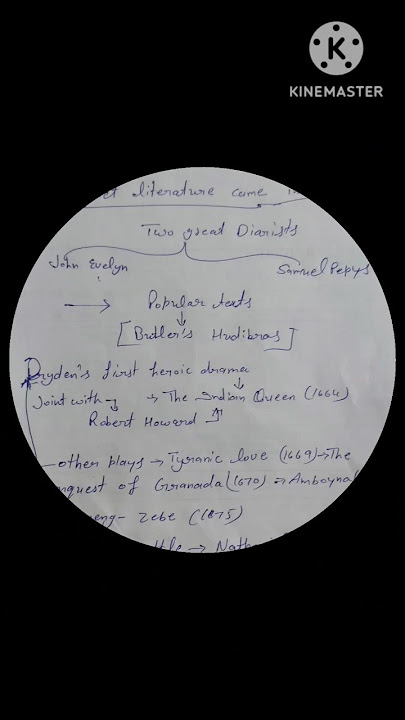 KINEMASTER
literature came
Two great Diarists
John Evelyn
Samuel Pepys
→ Popular texts
↓
[Butler's Hudibras]
Dryden's first heroic drama
Joint with → The Indian Queen (1664)
Robert Howard
other plays → Tyranic love (1669) → The
nquest of Granada (1670) → Amboyna
eng-zebe (1675)
ttle →